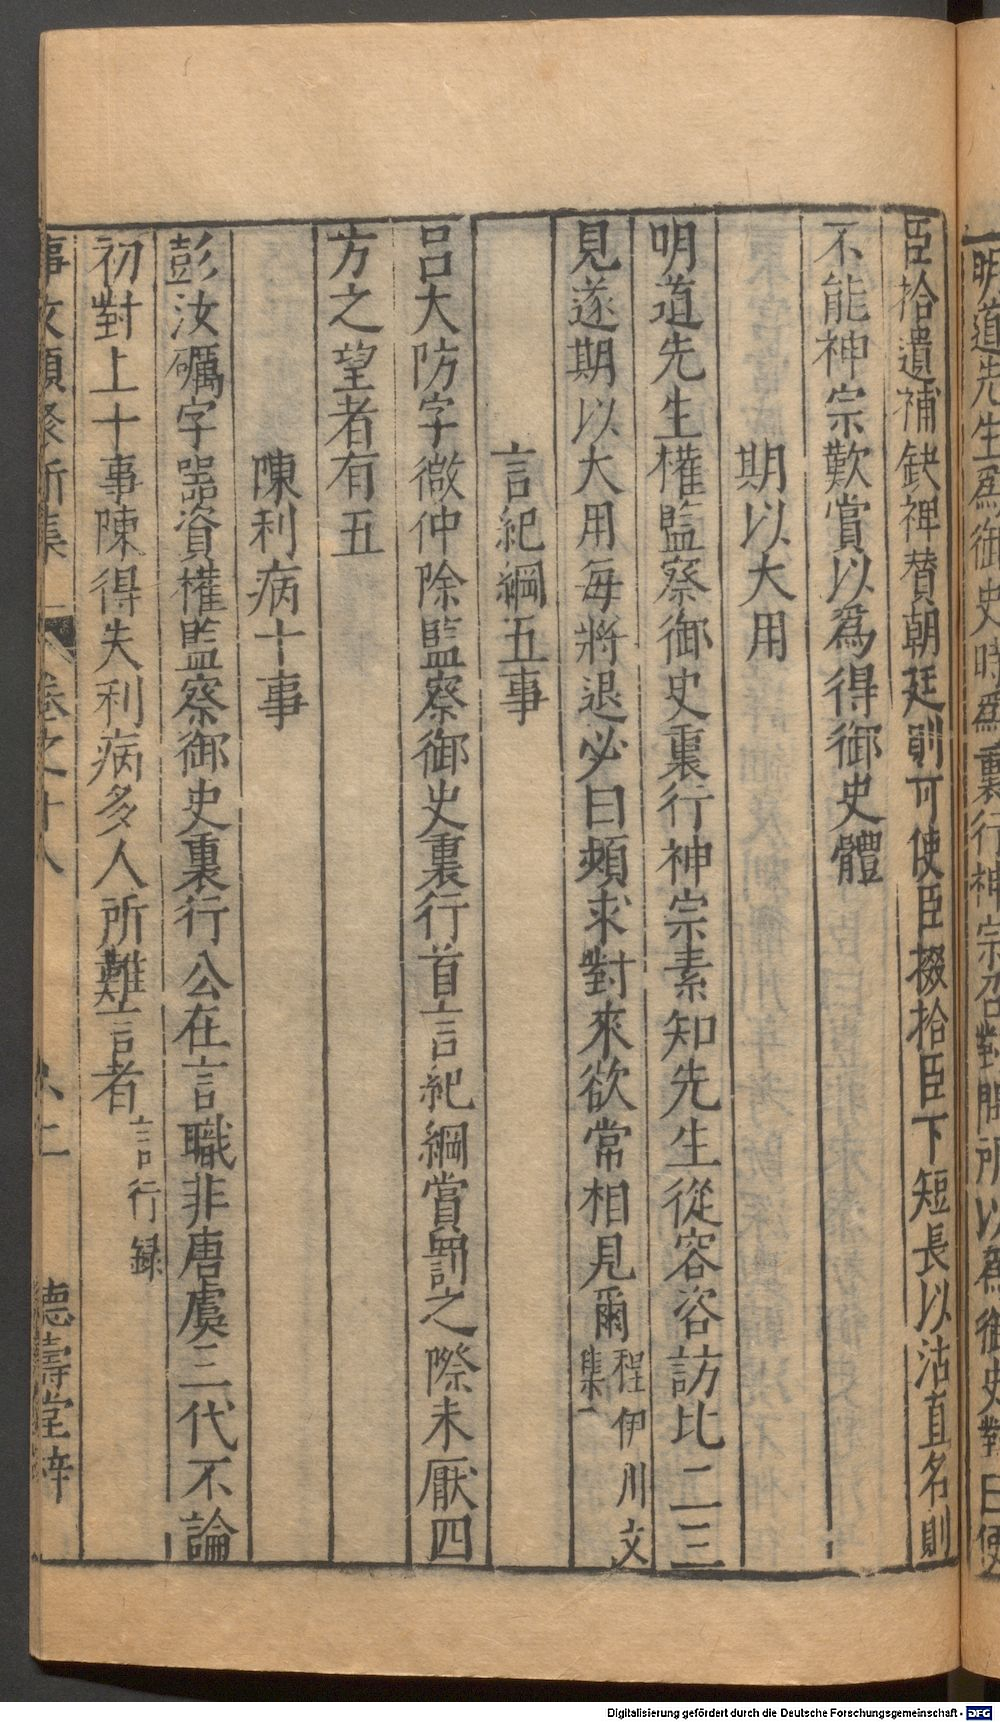 明道先生爲御史時爲裏行神宗召對問所以爲御史對曰使
臣拾遺補缺裨賛朝廷則可使臣掇拾臣下短長以沽直名則
不能神宗歎賞以爲得御史體
期以大用
明道先生權監察御史裏行神宗素知先生從容咨訪比二三
見遂期以大用每將退必曰頻求對來欲常相見爾程伊川文
集
言紀綱五事
呂大防字微仲除監察御史裏行首言紀綱賞罰之際未厭四
方之望者有五
陳利病十事
彭汝礪字器資權監察御史裏行公在言職非唐虞三代不論
初對上十事陳得失利病多人所難言者言行録
事文類聚新集 卷之十八 德壽堂梓
Digitalisierung gefördert durch die Deutsche Forschungsgemeinschaft - DFG